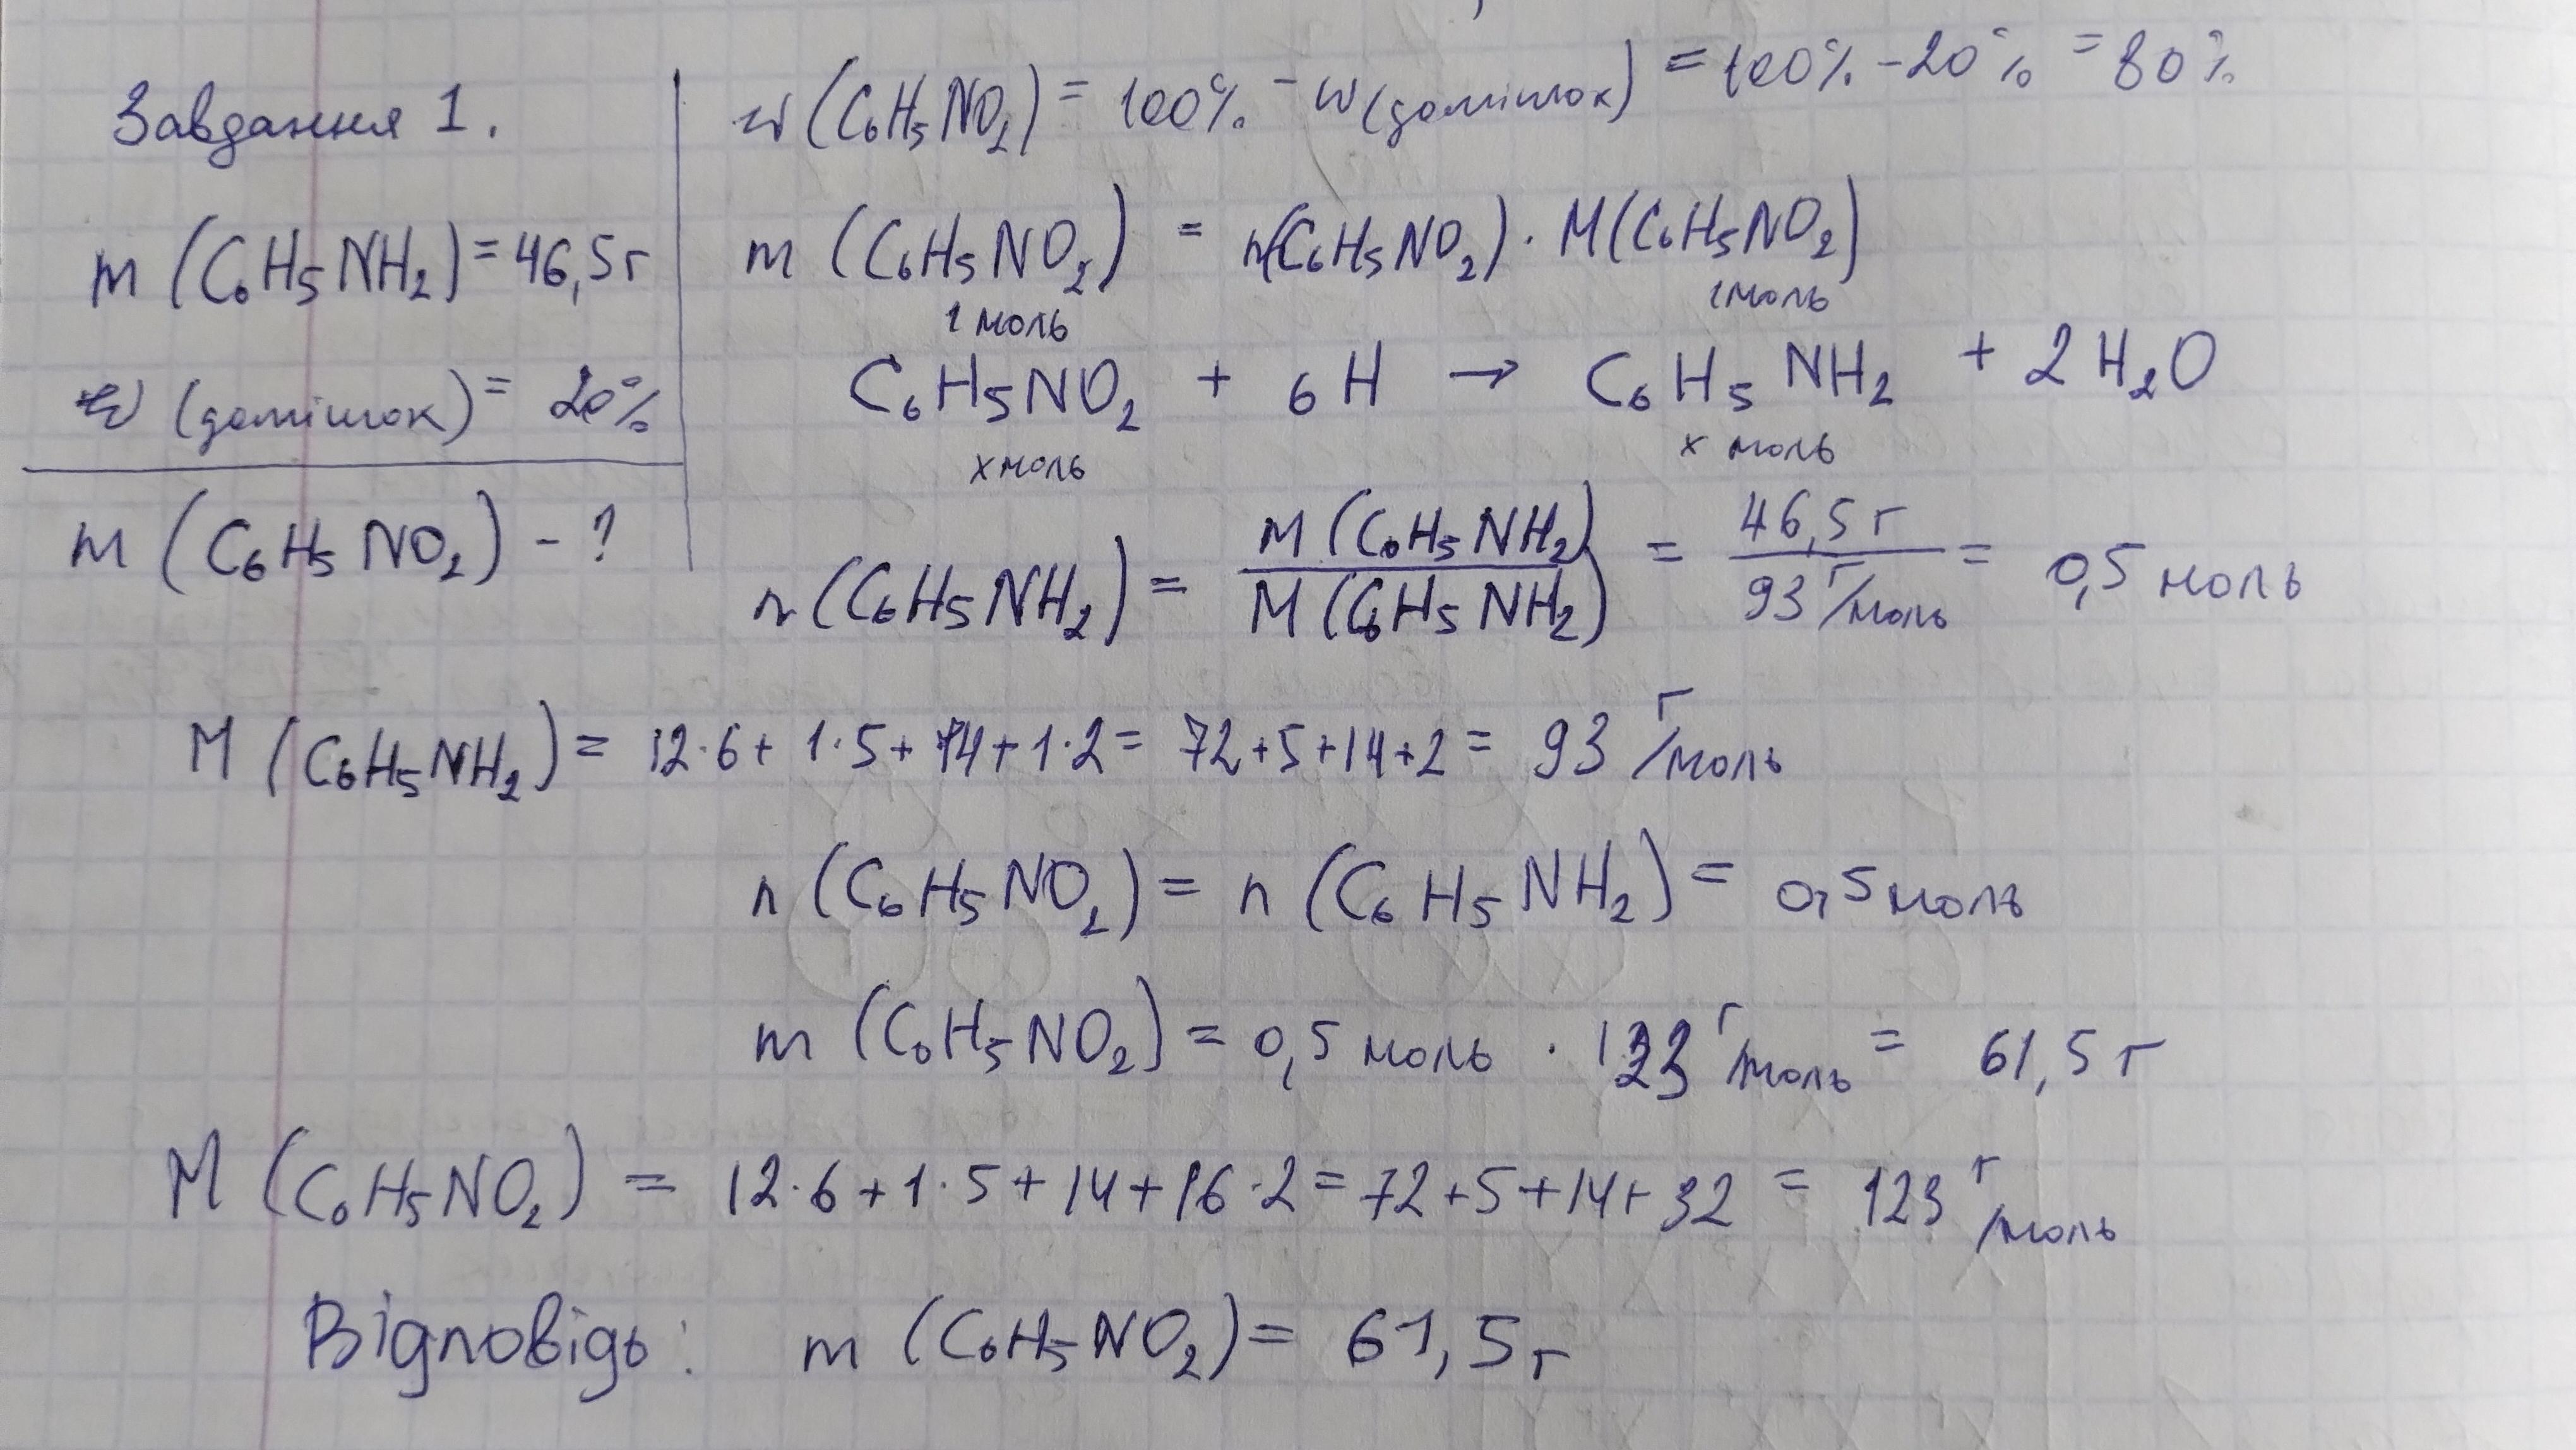 Завдання 1.
m (C₆H₅NH₂) = 46,5 г
w (домішок) = 20%
m (C₆H₅NO₂) - ?
w (C₆H₅NO₂) = 100% - w (домішок) = 100% - 20% = 80%
m (C₆H₅NO₂) = n(C₆H₅NO₂) · M(C₆H₅NO₂)
1 моль 1 моль
C₆H₅NO₂ + 6H → C₆H₅NH₂ + 2H₂O
x моль x моль
n (C₆H₅NH₂) = M (C₆H₅NH₂) / M (C₆H₅NH₂) = 46,5 г / 93 г/моль = 0,5 моль
M (C₆H₅NH₂) = 12·6 + 1·5 + 14 + 1·2 = 72+5+14+2 = 93 г/моль
n (C₆H₅NO₂) = n (C₆H₅NH₂) = 0,5 моль
m (C₆H₅NO₂) = 0,5 моль · 123 г/моль = 61,5 г
M (C₆H₅NO₂) = 12·6 + 1·5 + 14 + 16·2 = 72+5+14+32 = 123 г/моль
Відповідь: m (C₆H₅NO₂) = 61,5 г